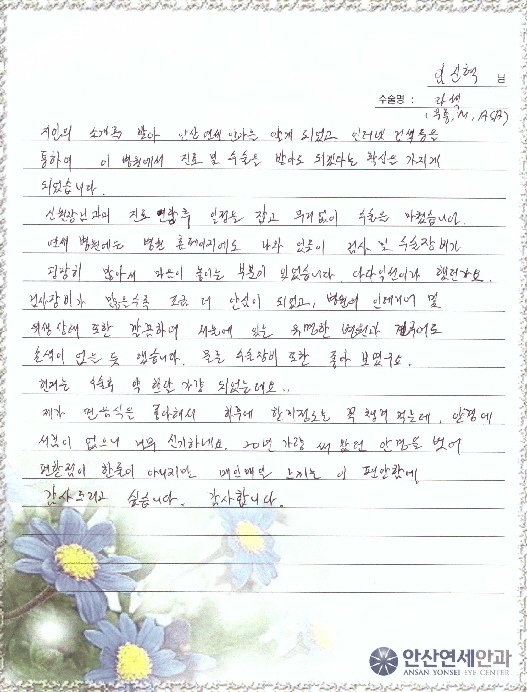 신혁 님
수술명 : 라섹
지인의 소개로 안산연세안과를 알게 되었고 인터넷 검색등을
통하여 이 병원에서 진료 및 수술을 받아도 되겠다는 확신을 가지게
되었습니다.
신원장님과의 진료 후 일정을 잡고 무리없이 수술을 마쳤습니다.
연세 병원에는 병원 홈페이지에도 나와 있듯이 검사 및 수술장비가
굉장히 많아서 마음이 놓이는 부분이 있었습니다 다다익선이라 했던가요.
검사장비가 많을수록 조금 더 안심이 되었고, 병원의 인테리어 및
위생상태 또한 깔끔하여 서울에 있는 유명한 병원과 견주어도
손색이 없을 듯 했습니다. 물론 수술장비 또한 좋아 보였구요.
현재는 수술후 약 한달 가량 되었는데요..
제가 면음식을 좋아해서 일주에 한 번정도는 꼭 챙겨 먹는데, 안경에
서림이 없으니 너무 신기하네요. 20년 가량 써 왔던 안경을 벗어
불편함이 한둘이 아니지만 매일매일 느끼는 이 편안함에
감사드리고 싶습니다. 감사합니다.
안산연세안과
ANSAN YONSEI EYE CENTER